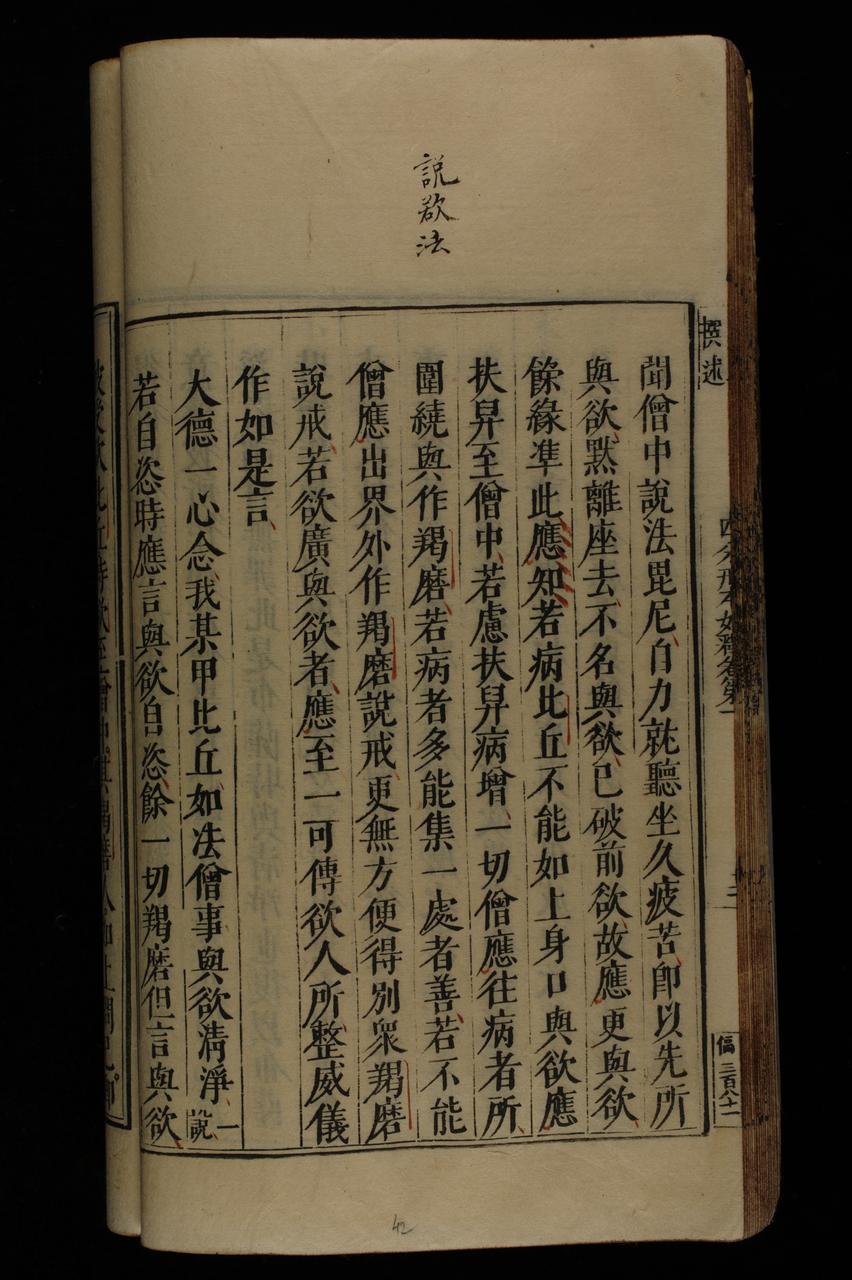 説欲法
撰述
聞僧中說法毘尼自力就聽坐久疲苦卽以先所
與欲默離座去不名與欲已破前欲故應更與欲
餘緣準此應知若病比丘不能如上身口與欲應
扶舁至僧中若慮扶舁病增一切僧應往病者所
圍繞與作羯磨若病者多能集一處者善若不能
僧應出界外作羯磨說戒更無方便得別衆羯磨
說戒若欲廣與欲者應至一可傳欲人所整威儀
作如是言
大德一心念我某甲比丘如法僧事與欲淸淨一說
若自恣時應言與欲自恣餘一切羯磨但言與欲
三百八十一
42